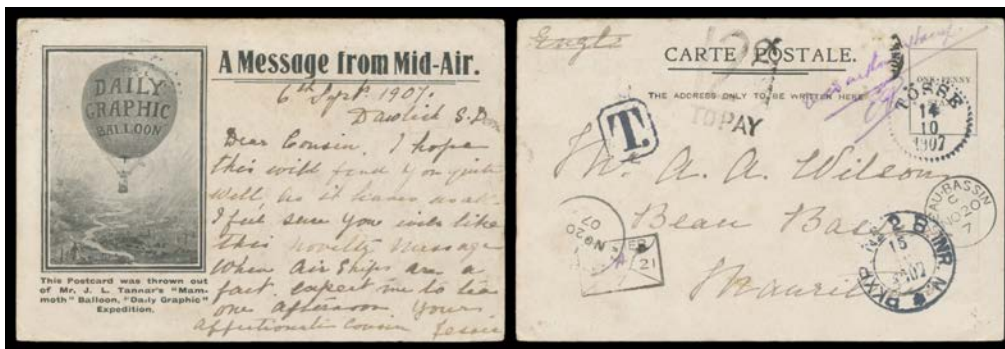 DAILY
GRAPHIC
BALLOON
This Postcard was thrown out
of Mr. J. L. Tannar's "Mam-
moth" Balloon, "Daily Graphic"
Expedition.
A Message from Mid-Air.
6th Sept. 1907.
Dawlish S. Devon
Dear Cousin, I hope
this will find you quite
well, as it leaves us all
I feel sure you will like
this novelty message
When Air Ships are a
fact, expect me to tea
one afternoon Yours
Affectionate Cousin Jessie
CARTE POSTALE.
THE ADDRESS ONLY TO BE WRITTEN HERE
ONE PENNY
TO PAY
T.
TÖSSE
14
10
1907
Mr. A. A. Wilson
Beau Bassin
Mauritius
BEAU-BASSIN
C
NO 20
7
NO 20
07
21
PKXP 2
15
1907